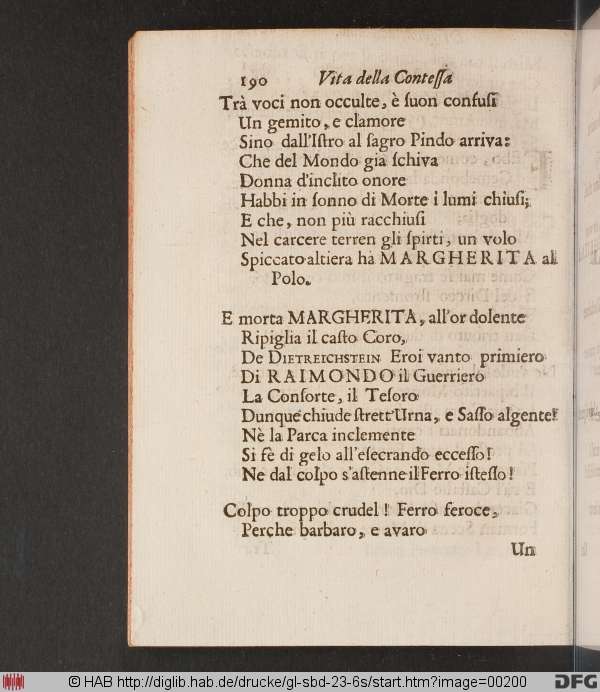 190 Vita della Conteſſa
Trà voci non occulte, è ſuon confuſi
Un gemito, e clamore
Sino dall'Iſtro al ſagro Pindo arriva:
Che del Mondo gia ſchiva
Donna d'inclito onore
Habbi in ſonno di Morte i lumi chiuſi;
E che, non più racchiuſi
Nel carcere terren gli ſpirti, un volo
Spiccato altiera hà MARGHERITA al
Polo.
E morta MARGHERITA, all'or dolente
Ripiglia il caſto Coro,
De DIETREICHSTEIN Eroi vanto primiero
Di RAIMONDO il Guerriero
La Conſorte, il Teſoro
Dunque chiude ſtrett'Urna, e Saſſo algente!
Nè la Parca inclemente
Si fè di gelo all'eſecrando ecceſſo!
Ne dal colpo s'aſtenne il Ferro iſteſſo!
Colpo troppo crudel! Ferro feroce,
Perche barbaro, e avaro
Un
© HAB http://diglib.hab.de/drucke/gl-sbd-23-6s/start.htm?image=00200
DFG